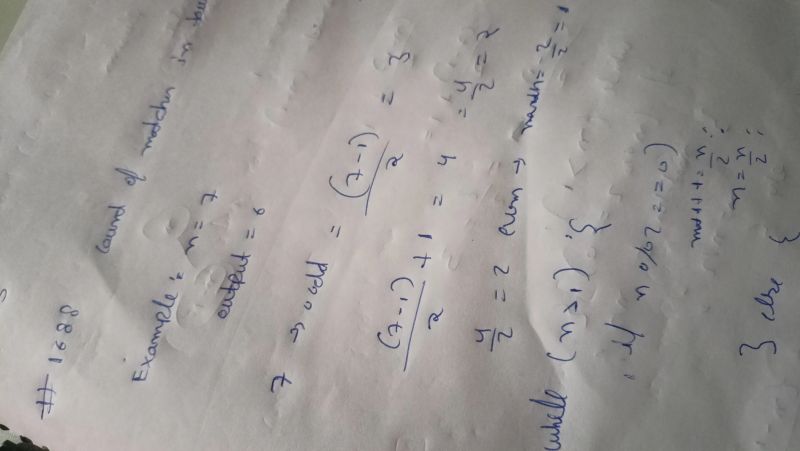 # 1688
Count of matches in
Example: n = 7
output = 6
7 → odd = (7-1)/2 = 3
(7-1)/2 + 1 = 4 = 4/2 = 2
4/2 = 2 even → = 2/2 = 1
while (n>1) {
if n%2==0)
+= n/2;
n = n/2;
} else {